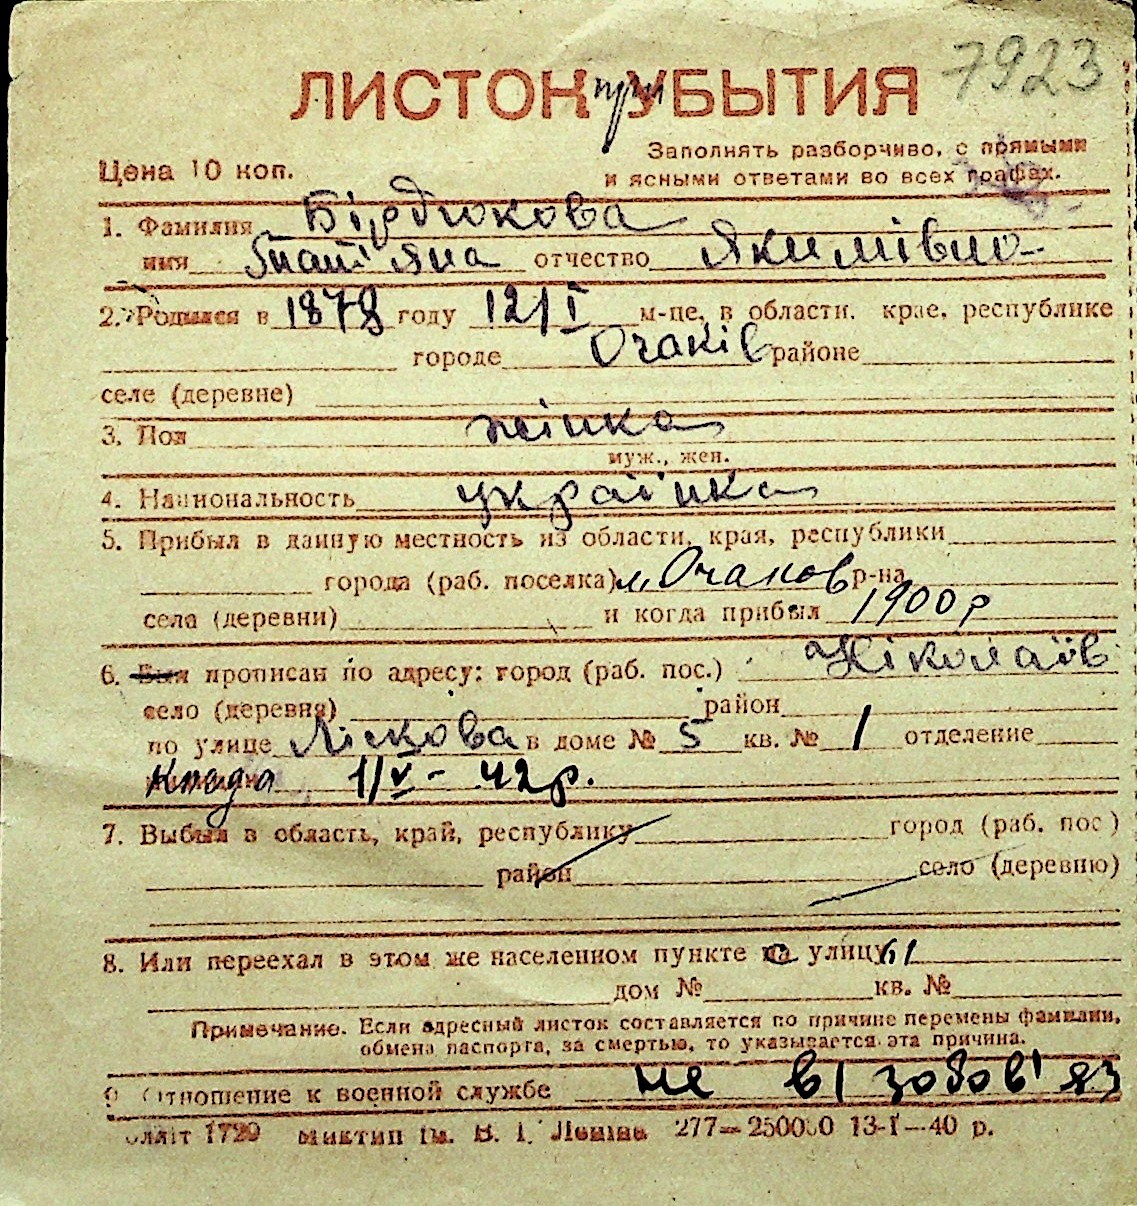 7923
ЛИСТОК при УБЫТИЯ
Цена 10 коп.
Заполнять разборчиво, с прямыми
и ясными ответами во всех графах.
1. Фамилия Бірдюкова
имя Тат'яна отчество Якимівна
2. Родился в 1878 году 12/I м-це, в области, крае, республике
городе Очаків районе
селе (деревне)
3. Пол жінка
муж., жен.
4. Национальность українка
5. Прибыл в данную местность из области, края, республики
города (раб. поселка) м. Очаков р-на
села (деревни) и когда прибыл 1900 р
6. Был прописан по адресу: город (раб. пос.) Ніколаїв
село (деревня) район
по улице Ліскова в доме № 5 кв. № 1 отделение
1/V - 42 р.
7. Выбыл в область, край, республику город (раб. пос.)
район село (деревню)
8. Или переехал в этом же населенном пункте с улицы
дом № кв. №
Примечание. Если адресный листок составляется по причине перемены фамилии,
обмена паспорта, за смертью, то указывается эта причина.
9 Отношение к военной службе не ві зобов'яз
лліт 1729 Миктип ім. В. І. Леніна 277—250000 13-I—40 р.